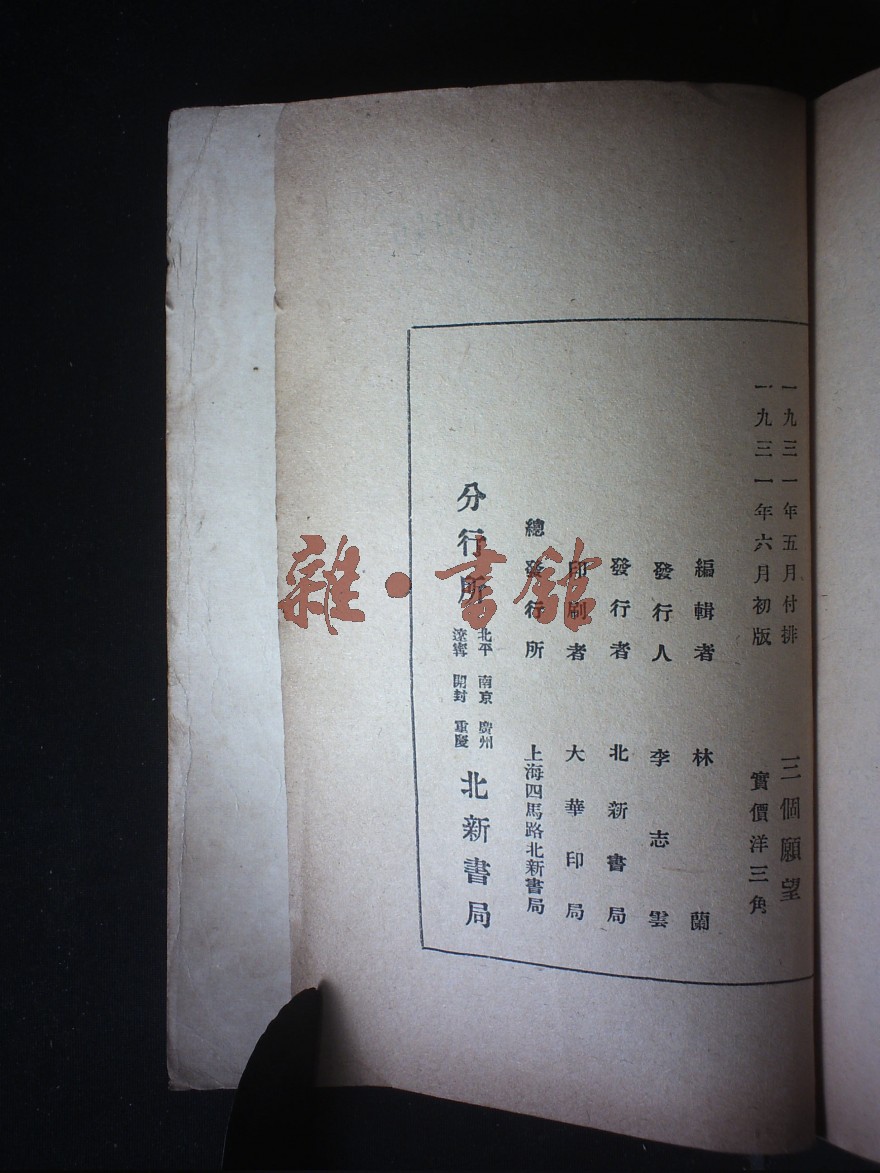 一九三一年五月付排
一九三一年六月初版
三個願望
實價洋三角
編輯者 林蘭
發行人 李志雲
發行者 北新書局
印刷者 大華印局
總發行所 上海四馬路北新書局
分行所 北平 南京 廣州 遼寧 開封 重慶 北新書局
雜·書館